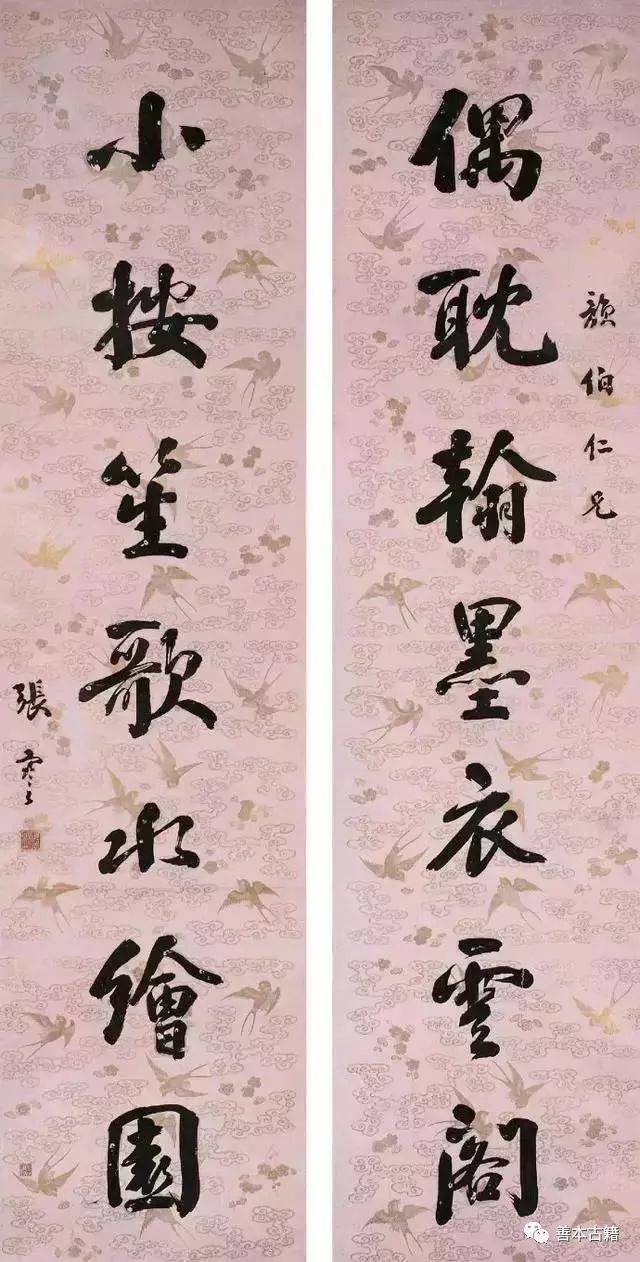 伯仁兄
偶耽翰墨衣雲閣
小按笙歌水繪園
張謇
善本古籍